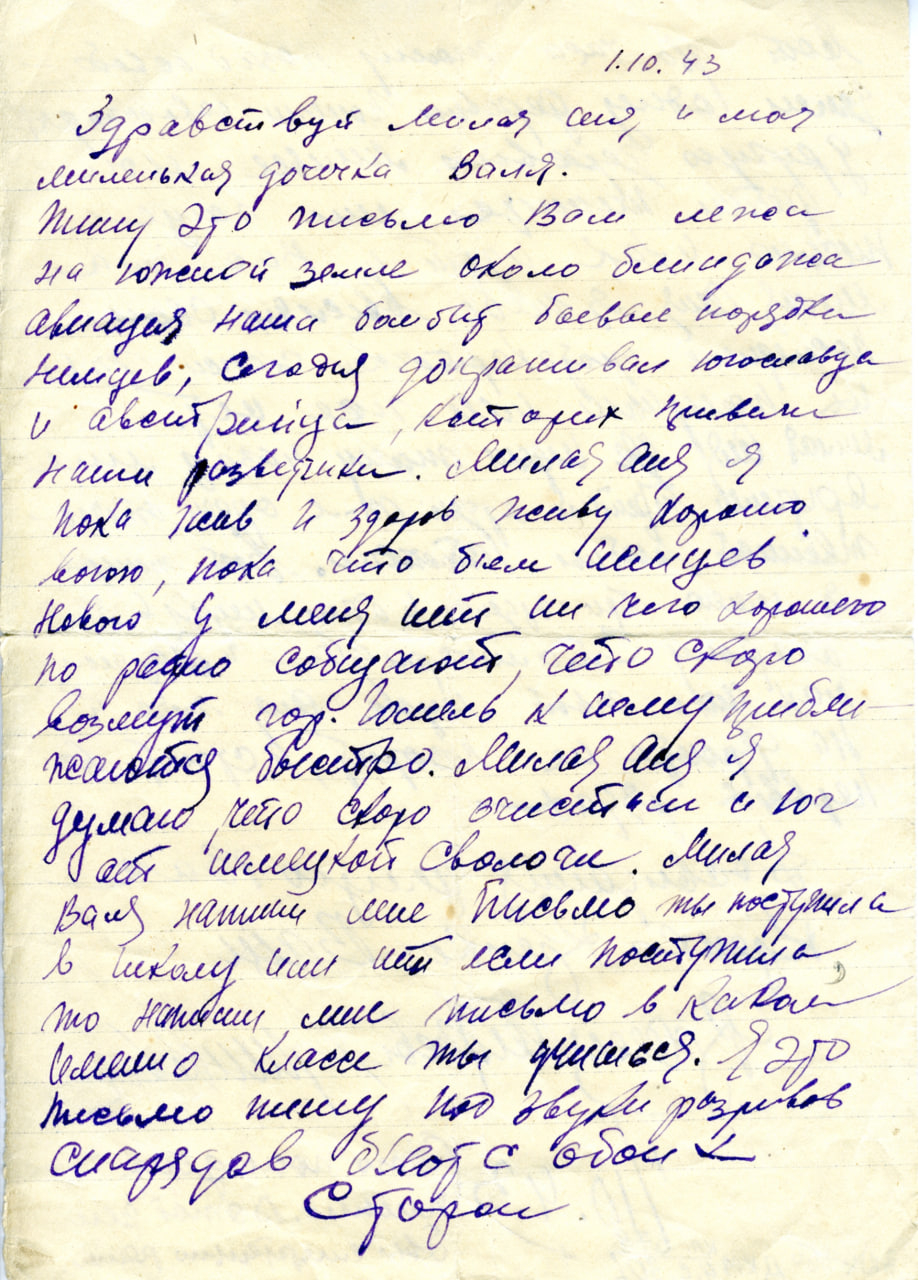 1.10.43
Здравствуй Милая Аня и моя
миленькая дочечка Валя.
Пишу это письмо Вам лежа
на южной земле около блиндажа
авиация наша бомбит боевые порядки
немцев, Сегодня допрашивал югославца
и австрийца, которых привели
наши разветчики. Милая Аня я
пока жив и здоров живу хорошо
воюю, пока что бьем немцев.
Нового у меня нет ни чего хорошего
по радио собщают, что скоро
возмут гор. Гомель к нему прибли-
жаются быстро. Милая Аня я
думаю, что скоро очистим и юг
от немецкой сволочи. Милая
Валя напиши мне письмо ты поступила
в школу или нет если поступила
то напиши мне письмо в каком
классе ты учишься. Я это
письмо пишу под звуки разрывов
снарядов бьют с обоих
Сторон